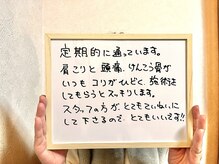 定期的に通っています。
肩こりと頭痛、けんこう骨が
いつもコリがひどく、施術法
してもらうとスッキリします。
スタッフの方が、とてもていねいに
して下さるので、とてもいいです!!